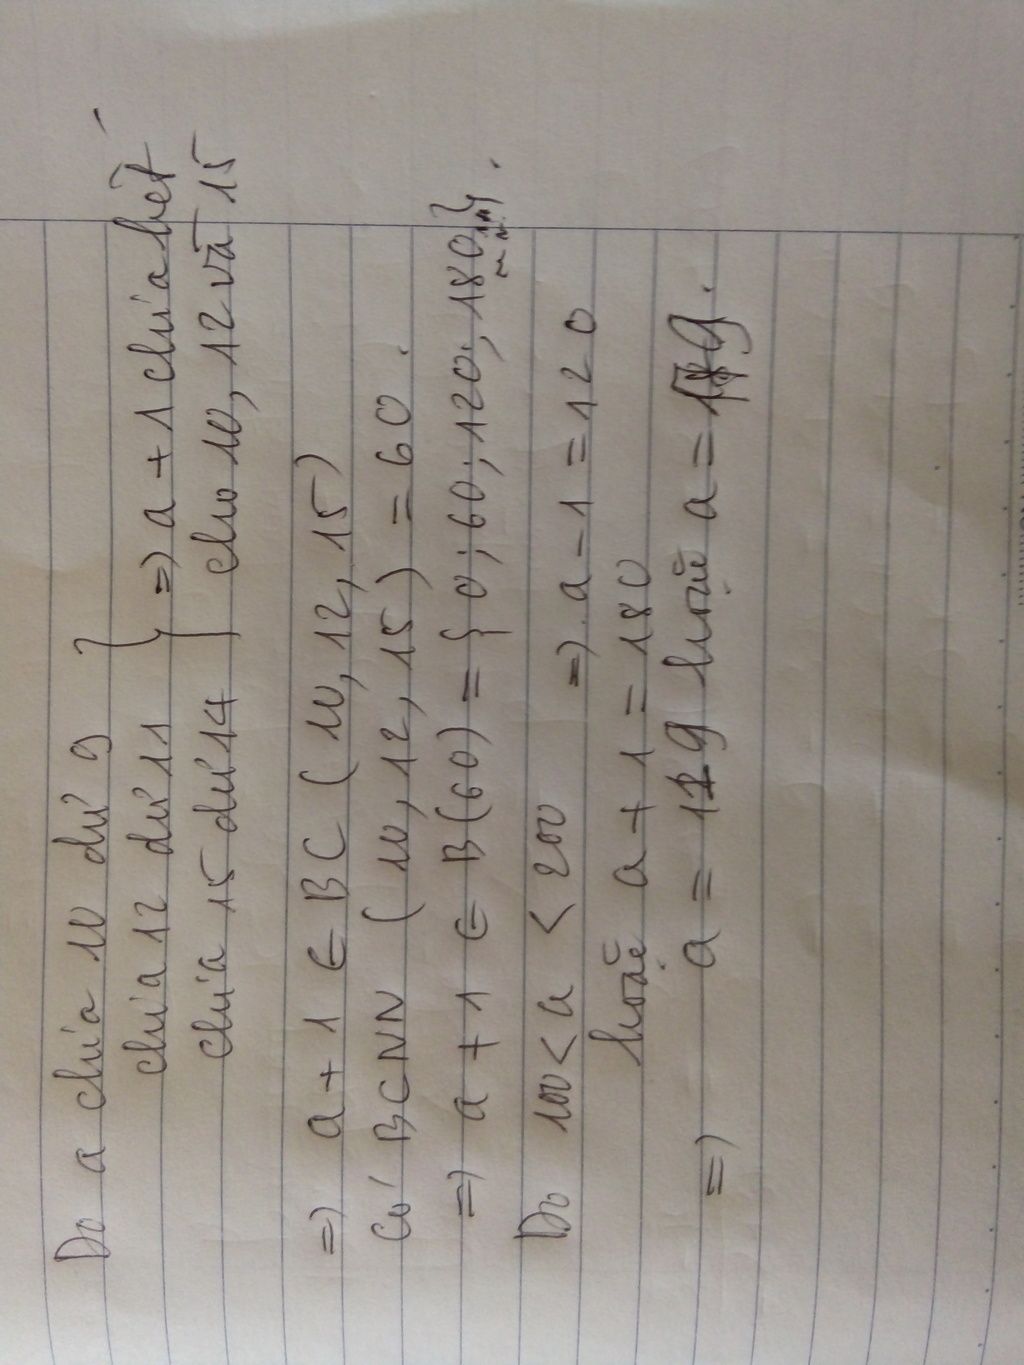 Do a chia 10 dư 9
chia 12 dư 11 } => a + 1 chia hết
chia 15 dư 14 cho 10, 12 và 15
=) a + 1 ∈ BC (10, 12, 15)
Có BCNN (10, 12, 15) = 60.
=) a + 1 ∈ B(60) = { 0; 60; 120; 180; ... }.
Do 100 < a < 200 =) a - 1 = 120
hoặc a + 1 = 180
=) a = 119 hoặc a = 179.